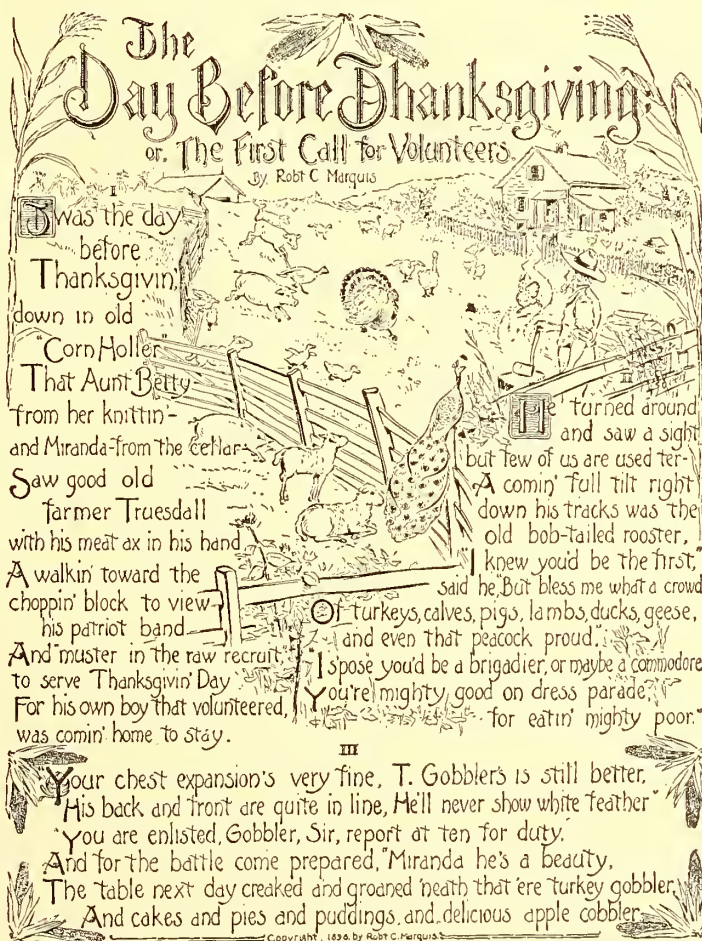 The
Day Before Thanksgiving:
or, The First Call for Volunteers.
By Robt C Marquis
I
Twas the day
before
Thanksgivin'
down in old
"Corn Holler"
That Aunt Betty-
from her knittin'-
and Miranda-from the cellar-
Saw good old
farmer Truesdall
with his meat ax in his hand
A walkin' toward the
choppin' block to view
his patriot band
And muster in the raw recruit
to serve Thanksgivin' Day
For his own boy that volunteered,
was comin' home to stay.
II
He turned around
and saw a sight
but few of us are used ter-
A comin' full tilt right
down his tracks was the
old bob-tailed rooster,
"I knew you'd be the first,"
said he, "But bless me what a crowd
Of turkeys, calves, pigs, lambs, ducks, geese,
and even that peacock proud."
"I s'pose you'd be a brigadier, or maybe a commodore
You're mighty good on dress parade,
for eatin' mighty poor."
III
"Your chest expansion's very fine, T. Gobbler's is still better,
His back and front are quite in line, He'll never show white feather"
"You are enlisted, Gobbler, Sir, report at ten for duty."
And for the battle come prepared, "Miranda he's a beauty,
The table next day creaked and groaned 'neath that 'ere turkey gobbler,
And cakes and pies and puddings, and delicious apple cobbler.
Copyright, 1898, by Robt C. Marquis.